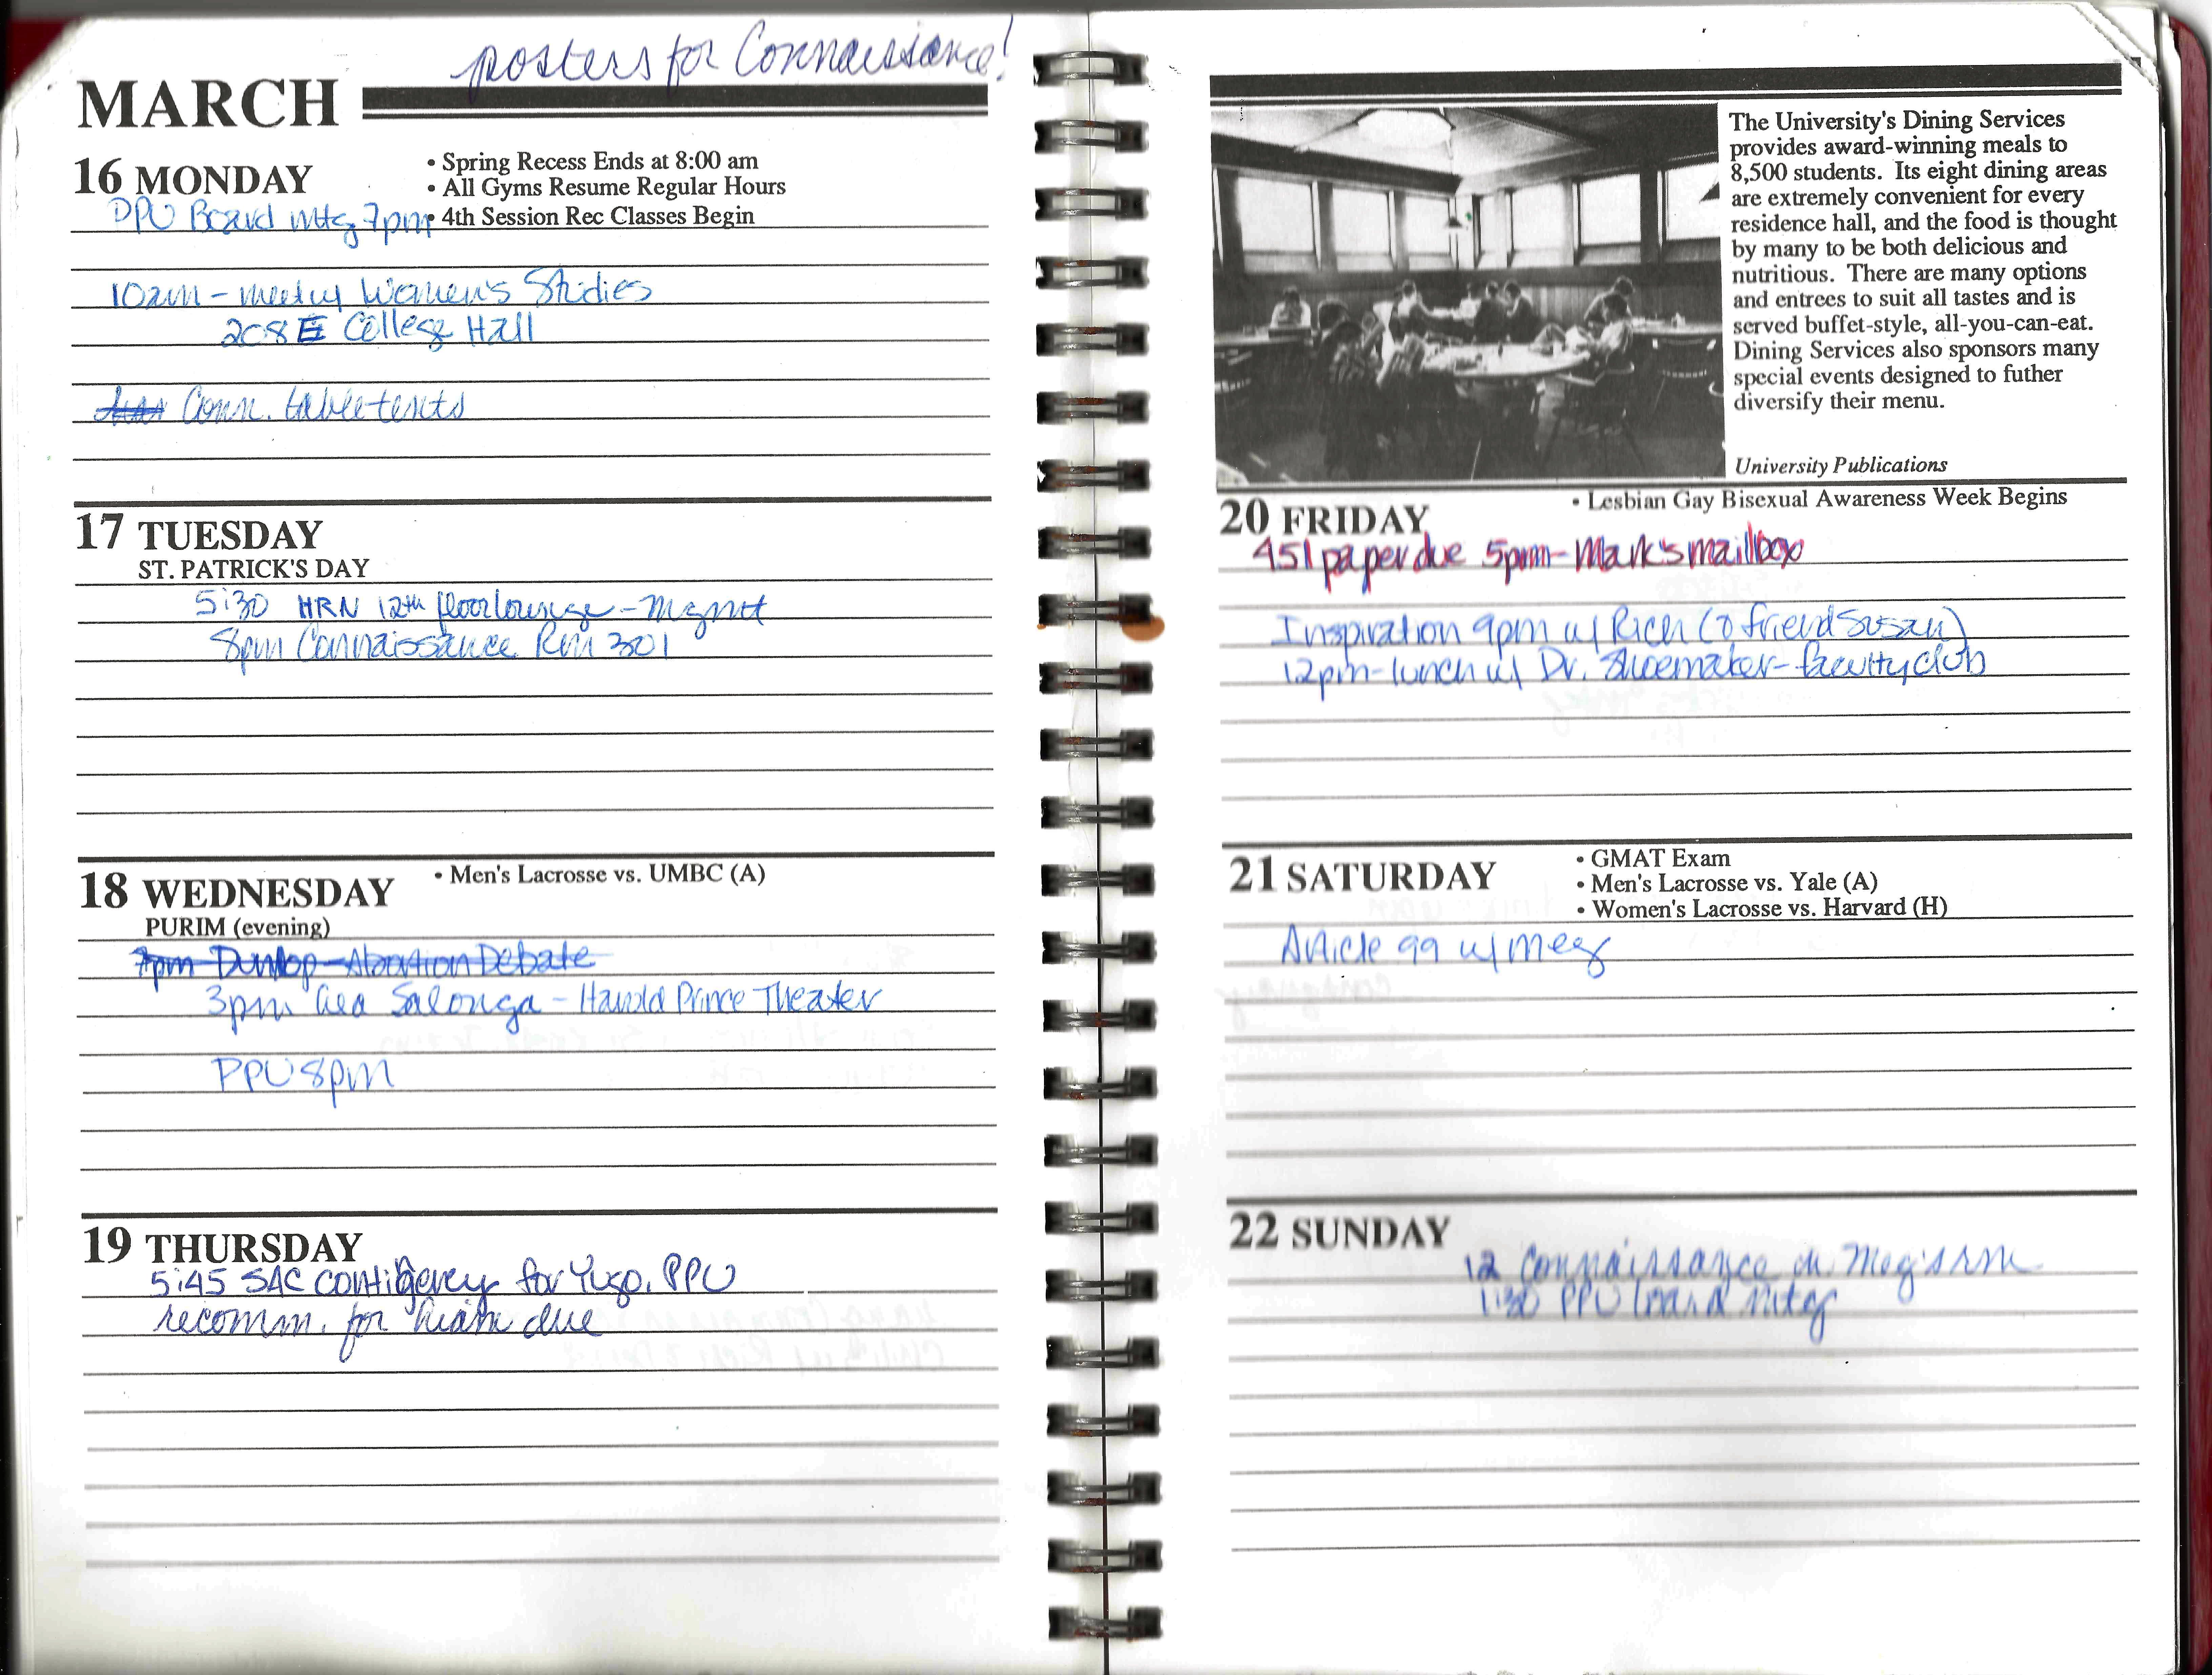 posters for Connaissance!
MARCH
16 MONDAY
• Spring Recess Ends at 8:00 am
• All Gyms Resume Regular Hours
• 4th Session Rec Classes Begin
PPU Board mtg 7pm
10am - meeting Women's Studies
208E College Hall
Conn. table tents
17 TUESDAY
ST. PATRICK'S DAY
5:30 HRN 12th floor lounge - Mgmt
8pm Connaissance Rm 301
18 WEDNESDAY
• Men's Lacrosse vs. UMBC (A)
PURIM (evening)
7pm Dunlop - Abortion Debate
3pm Lea Salonga - Harold Prince Theater
PPU 8pm
19 THURSDAY
5:45 SAC contigency for Yugo. PPU
recomm. for due
The University's Dining Services
provides award-winning meals to
8,500 students. Its eight dining areas
are extremely convenient for every
residence hall, and the food is thought
by many to be both delicious and
nutritious. There are many options
and entrees to suit all tastes and is
served buffet-style, all-you-can-eat.
Dining Services also sponsors many
special events designed to futher
diversify their menu.
University Publications
20 FRIDAY
• Lesbian Gay Bisexual Awareness Week Begins
451 paper due 5pm - Mark's mailbox
Inspiration 9pm w/ Rich (& friend Susan)
12pm - lunch w/ Dr. Shoemaker - faculty club
21 SATURDAY
• GMAT Exam
• Men's Lacrosse vs. Yale (A)
• Women's Lacrosse vs. Harvard (H)
Article 99 w/ Meg
22 SUNDAY
12 Connaissance in Meg's rm
1:30 PPU board mtg